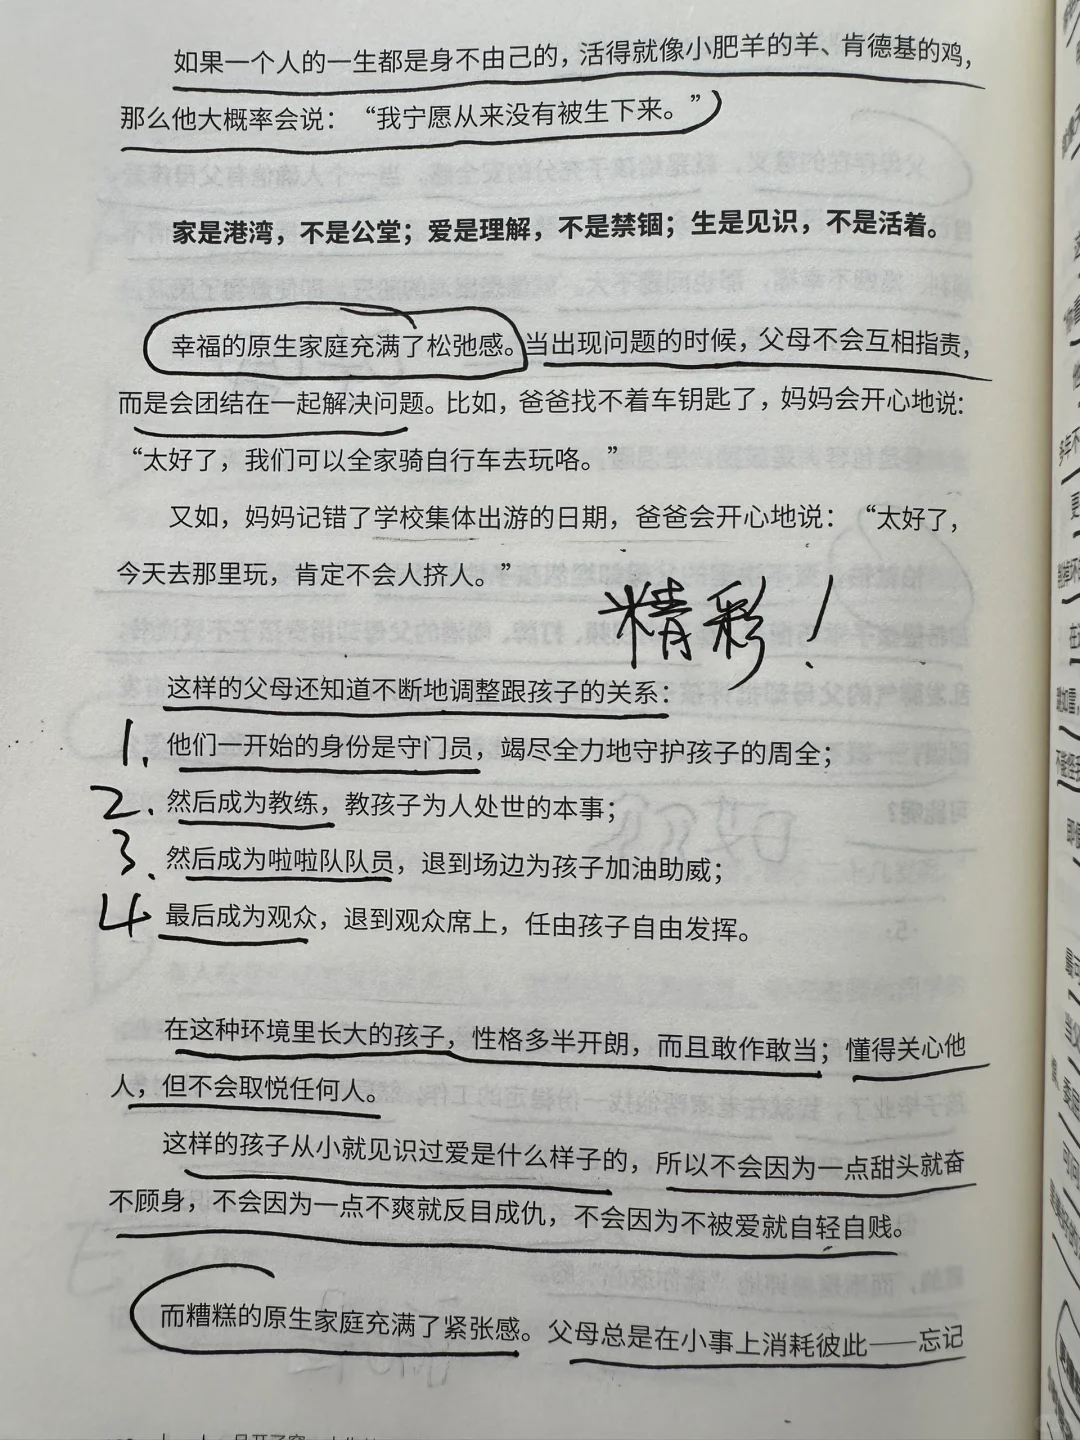 如果一个人的一生都是身不由己的，活得就像小肥羊的羊、肯德基的鸡，
那么他大概率会说：“我宁愿从来没有被生下来。”
家是港湾，不是公堂；爱是理解，不是禁锢；生是见识，不是活着。
幸福的原生家庭充满了松弛感。当出现问题的时候，父母不会互相指责，
而是会团结在一起解决问题。比如，爸爸找不着车钥匙了，妈妈会开心地说：
“太好了，我们可以全家骑自行车去玩咯。”
又如，妈妈记错了学校集体出游的日期，爸爸会开心地说：“太好了，
今天去那里玩，肯定不会人挤人。”
精彩！
这样的父母还知道不断地调整跟孩子的关系：
1. 他们一开始的身份是守门员，竭尽全力地守护孩子的周全；
2. 然后成为教练，教孩子为人处世的本事；
3. 然后成为啦啦队队员，退到场边为孩子加油助威；
4 最后成为观众，退到观众席上，任由孩子自由发挥。
在这种环境里长大的孩子，性格多半开朗，而且敢作敢当；懂得关心他
人，但不会取悦任何人。
这样的孩子从小就见识过爱是什么样子的，所以不会因为一点甜头就奋
不顾身，不会因为一点不爽就反目成仇，不会因为不被爱就自轻自贱。
而糟糕的原生家庭充满了紧张感。父母总是在小事上消耗彼此——忘记